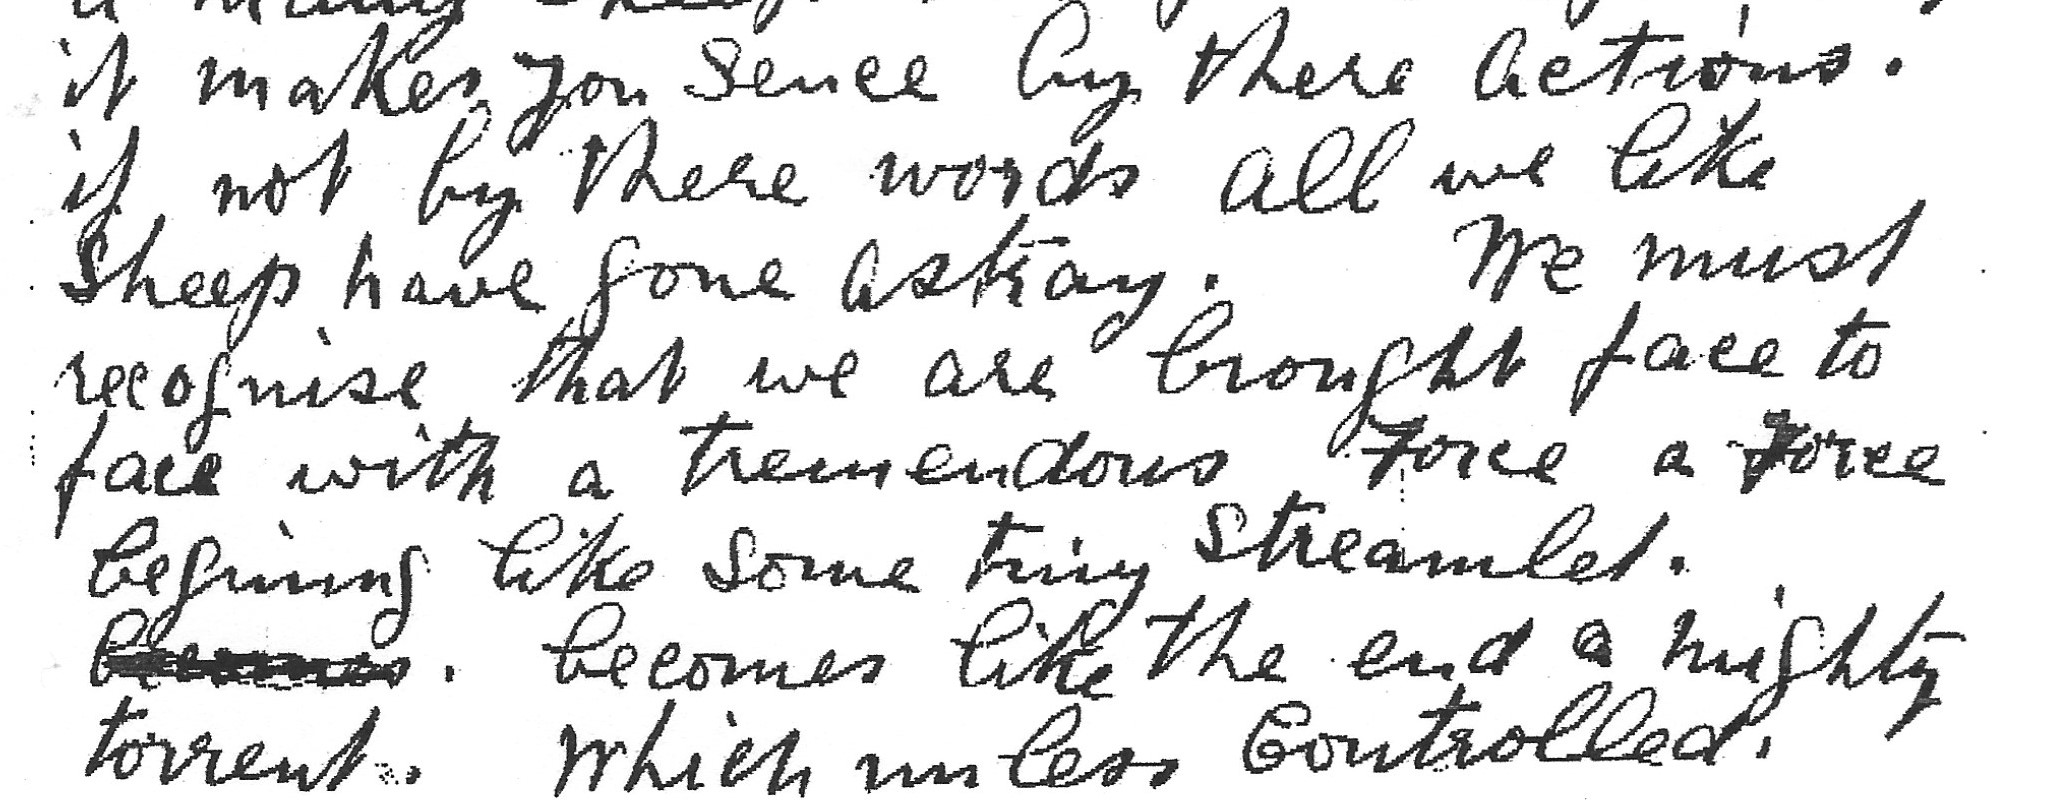 it makes you Sence by there actions.
if not by there words all we like
Sheep have gone astray. We must
recognise that we are brought face to
face with a tremendous Force a Force
begining like some tiny Streamlet.
becomes. becomes like the end a mighty
torrent. Which unless Controlled.